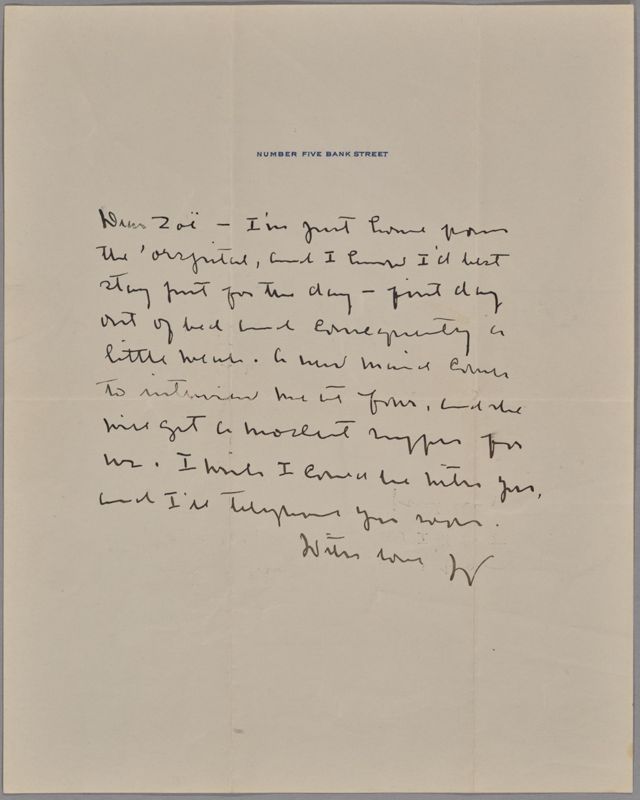 NUMBER FIVE BANK STREET
Dear Zoë — I'm just home from
the 'orspital, and I know I'd best
stay put for the day — first day
out of bed and consequently a
little weak. A new maid comes
to interview me at four, and she
will get a modest supper for
us. I wish I could be with you,
and I'll telephone you soon.
With love W